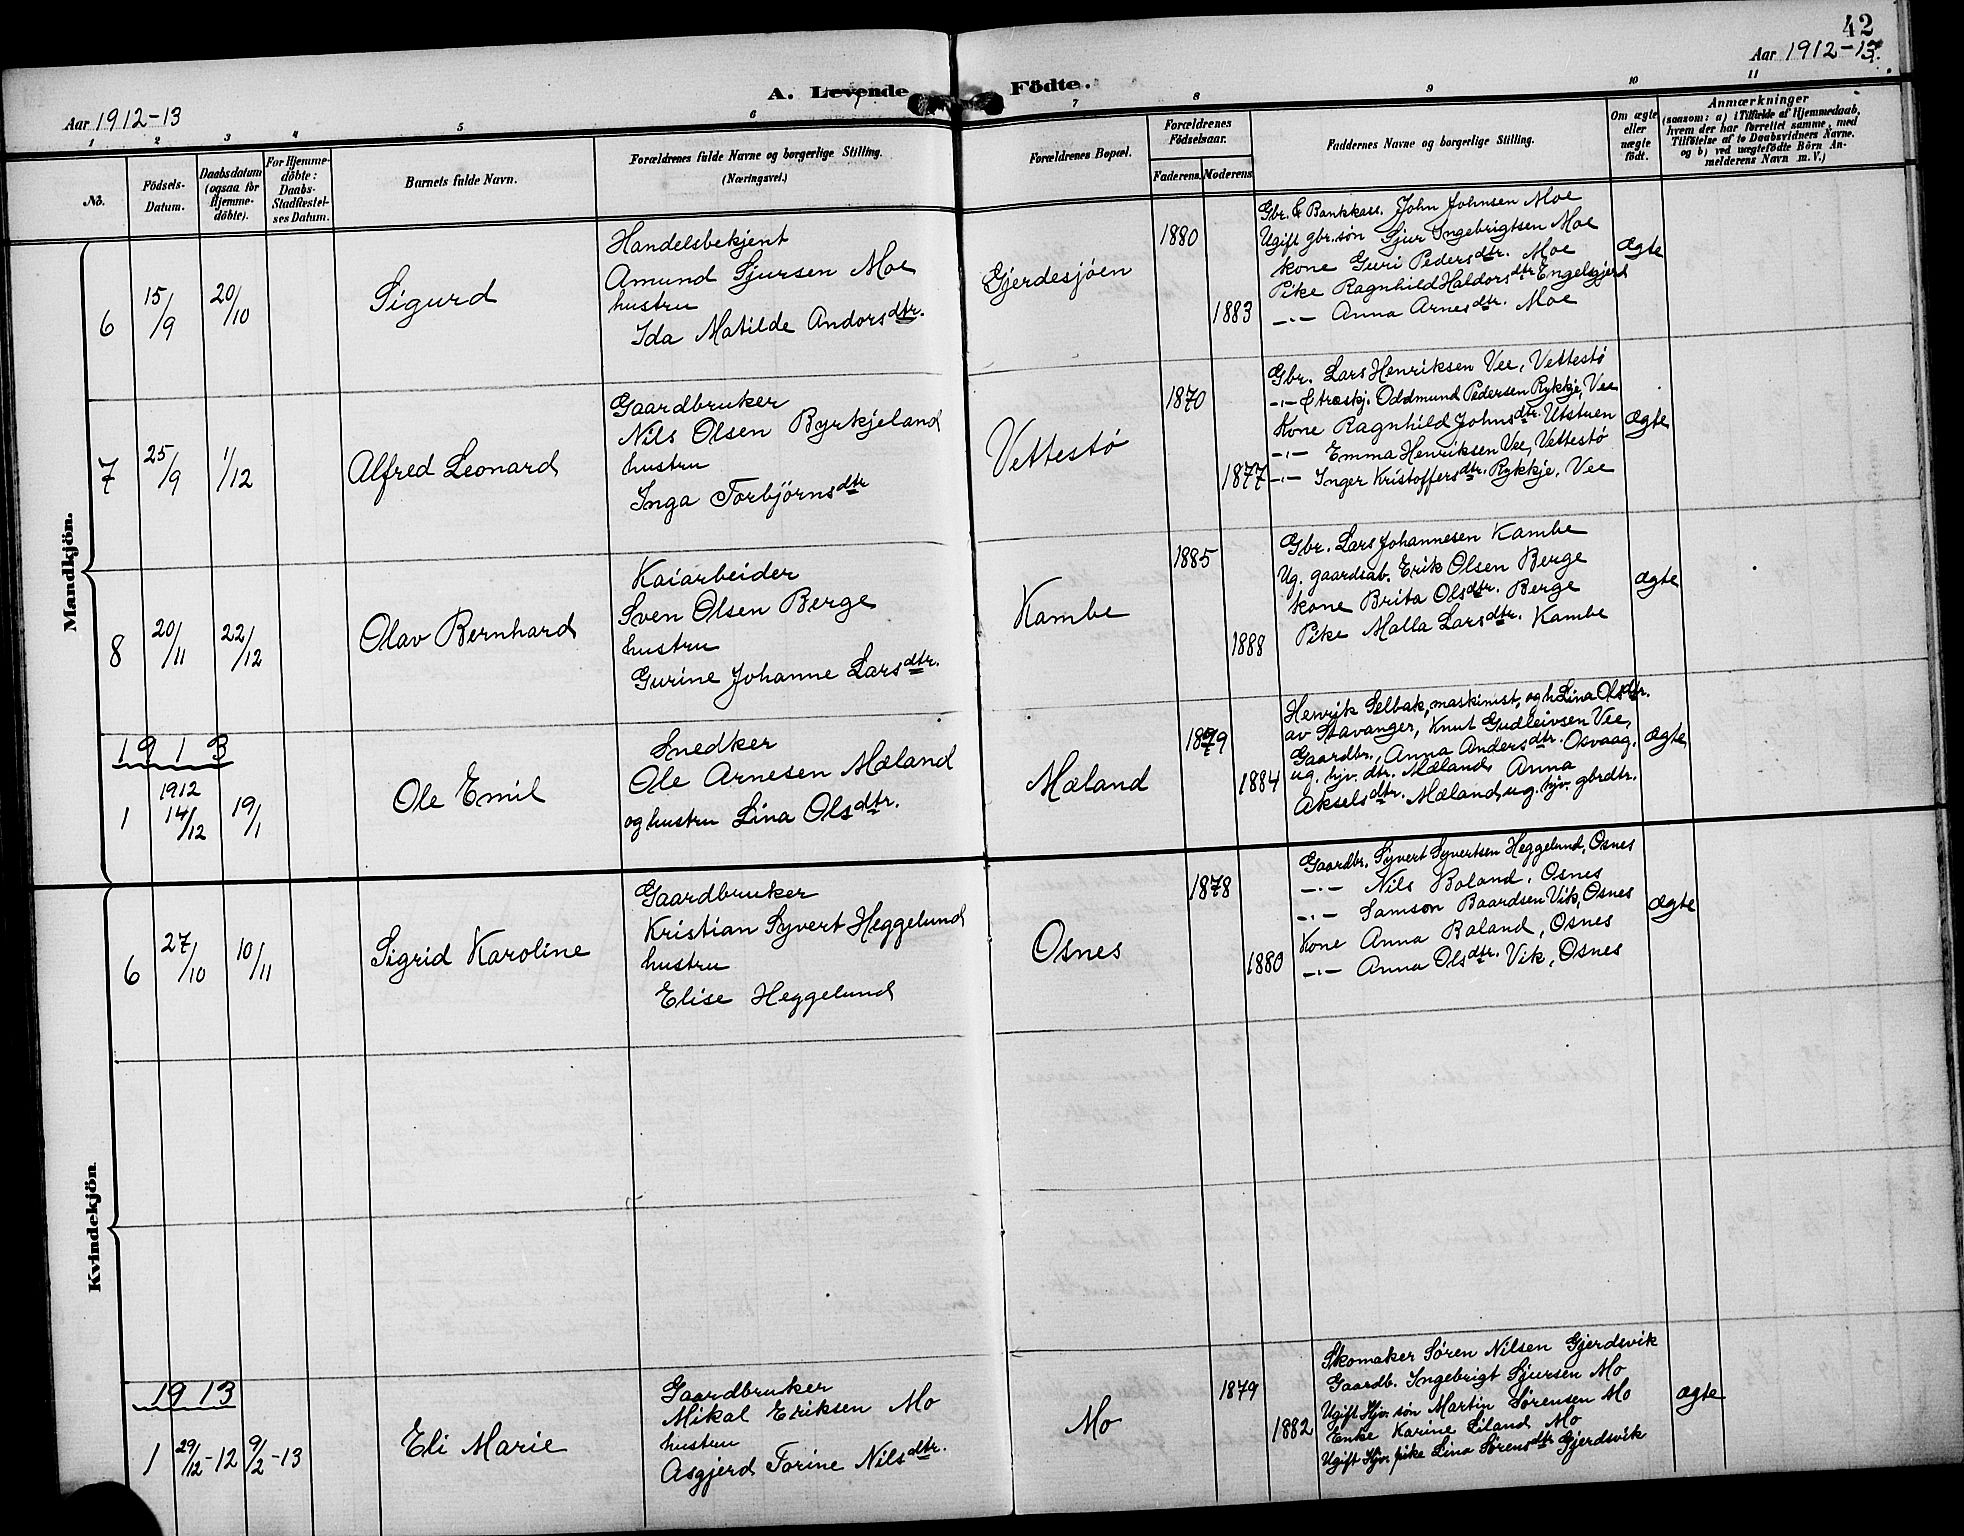 42
Aar 1912-13
A. Levende Födte.
Aar 1912-13.
1 2 3 4 5 6 7 8 9 10 11
No.
Födsels-Datum.
Daabsdatum (ogsaa for Hjemme-döbte).
For Hjemme-döbte: Daabs-Stadfæstel-ses Datum.
Barnets fulde Navn.
Forældrenes fulde Navne og borgerlige Stilling.
(Næringsvei.)
Forældrenes Bopæl.
Forældrenes Födselsaar.
Faderens. Moderens.
Faddernes Navne og borgerlige Stilling.
Om ægte eller uægte födt.
Anmærkninger
(saasom: a) i Tilfælde af Hjemmedaab,
hvem der har forrettet samme, med
Tilföielse af to Daabsvidners Navne.
og b) ved uægtefödte Börn An-
melderens Navn m. V.)
Mandkjön.
6 15/9 20/10 Sigurd
Handelsbetjent
Amund Sjursen Moe
hustru
Ida Matilde Andorsdtr.
Gjerdesjøen
1880
1883
Gbr. & Bankkass. John Johnsen Moe
Ugift gbr.søn Sjur Ingebrigtsen Moe
Kone Guri Pedersdtr. Moe
Pike Ragnhild Haldorsdtr Engelsgjerd
-"- Anna Arnesdtr. Moe
Ægte
7 25/9 1/12 Alfred Leonard
Gaardbruker
Nils Olsen Byrkjeland
hustru
Inga Torbjørnsdtr
Vettestø
1870
1877
Gbr. Lars Henriksen Vee, Vettestø
-"- & træskj. Oddmund Pedersen Rykkje, Vee
Kone Ragnhild Johnsdtr. Utstuen
-"- Emma Henriksen Vee, Vettestø
-"- Inger Kristoffersdtr. Rykkje, Vee
Ægte
8 20/11 22/12 Olav Bernhard
Kaiarbeider
Sven Olsen Berge
hustru
Gurine Johanne Larsdtr.
Kambe
1885
1888
Gbr. Lars Johannesen Kambe
Ug. gaardsab. Erik Olsen Berge
Kone Brita Olsdtr. Berge
Pike Malla Larsdtr. Kambe
Ægte
1913
1 1912 14/12 19/1 Ole Emil
Snedker
Ole Arnesen Mæland
og hustru Lina Olsdtr.
Mæland
1879
1884
Henrik Selbak, maskinist, og h. Lina Olsdtr.
av Stavanger, Knut Gudleivsen Vee,
Gaardbr., Anna Andersdtr. Osvaag,
ug. hjv. dtr. Mæland, Anna
Akselsdtr. Mæland, ug. hjv. gbrdtr.
Ægte
Kvindekjön
6 27/10 10/11 Sigrid Karoline
Gaardbruker
Kristian Syvert Heggelund
hustru
Elise Heggelund
Osnes
1878
1880
Gaardbr. Syvert Syvertsen Heggelund, Osnes
-"- Nils Boland, Osnes
-"- Samson Baardsen Vik, Osnes
Kone Anna Boland, Osnes
-"- Anna Olsdtr. Vik, Osnes
Ægte
1913
1 29/12-12 9/2-13 Eli Marie
Gaardbruker
Mikal Eriksen Mo
hustru
Asgjerd Torine Nilsdtr.
Mo
1879
1882
Skomaker Søren Nilsen Gjerdsvik
Gaardb. Ingebrigt Sjursen Mo
Ugift Hjv. søn Martin Sørensen Mo
Enke Karine Liland Mo
Ugift Hjv. pike Lina Sørensdtr Gjerdsvik
Ægte